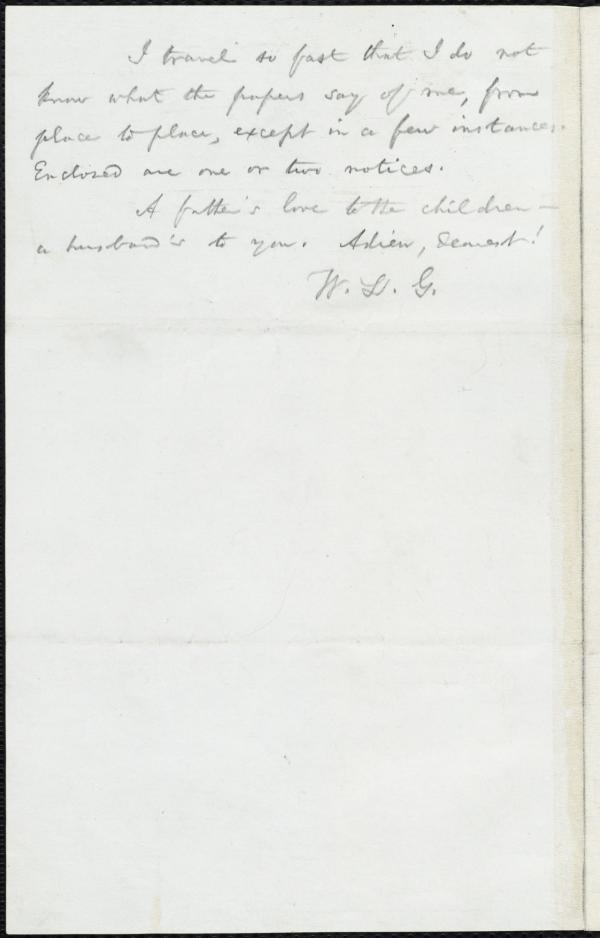 I travel so fast that I do not
know what the papers say of me, from
place to place, except in a few instances.
Enclosed are one or two notices.
A father's love to the children—
a husband's to you. Adieu, dearest!
W. L. G.